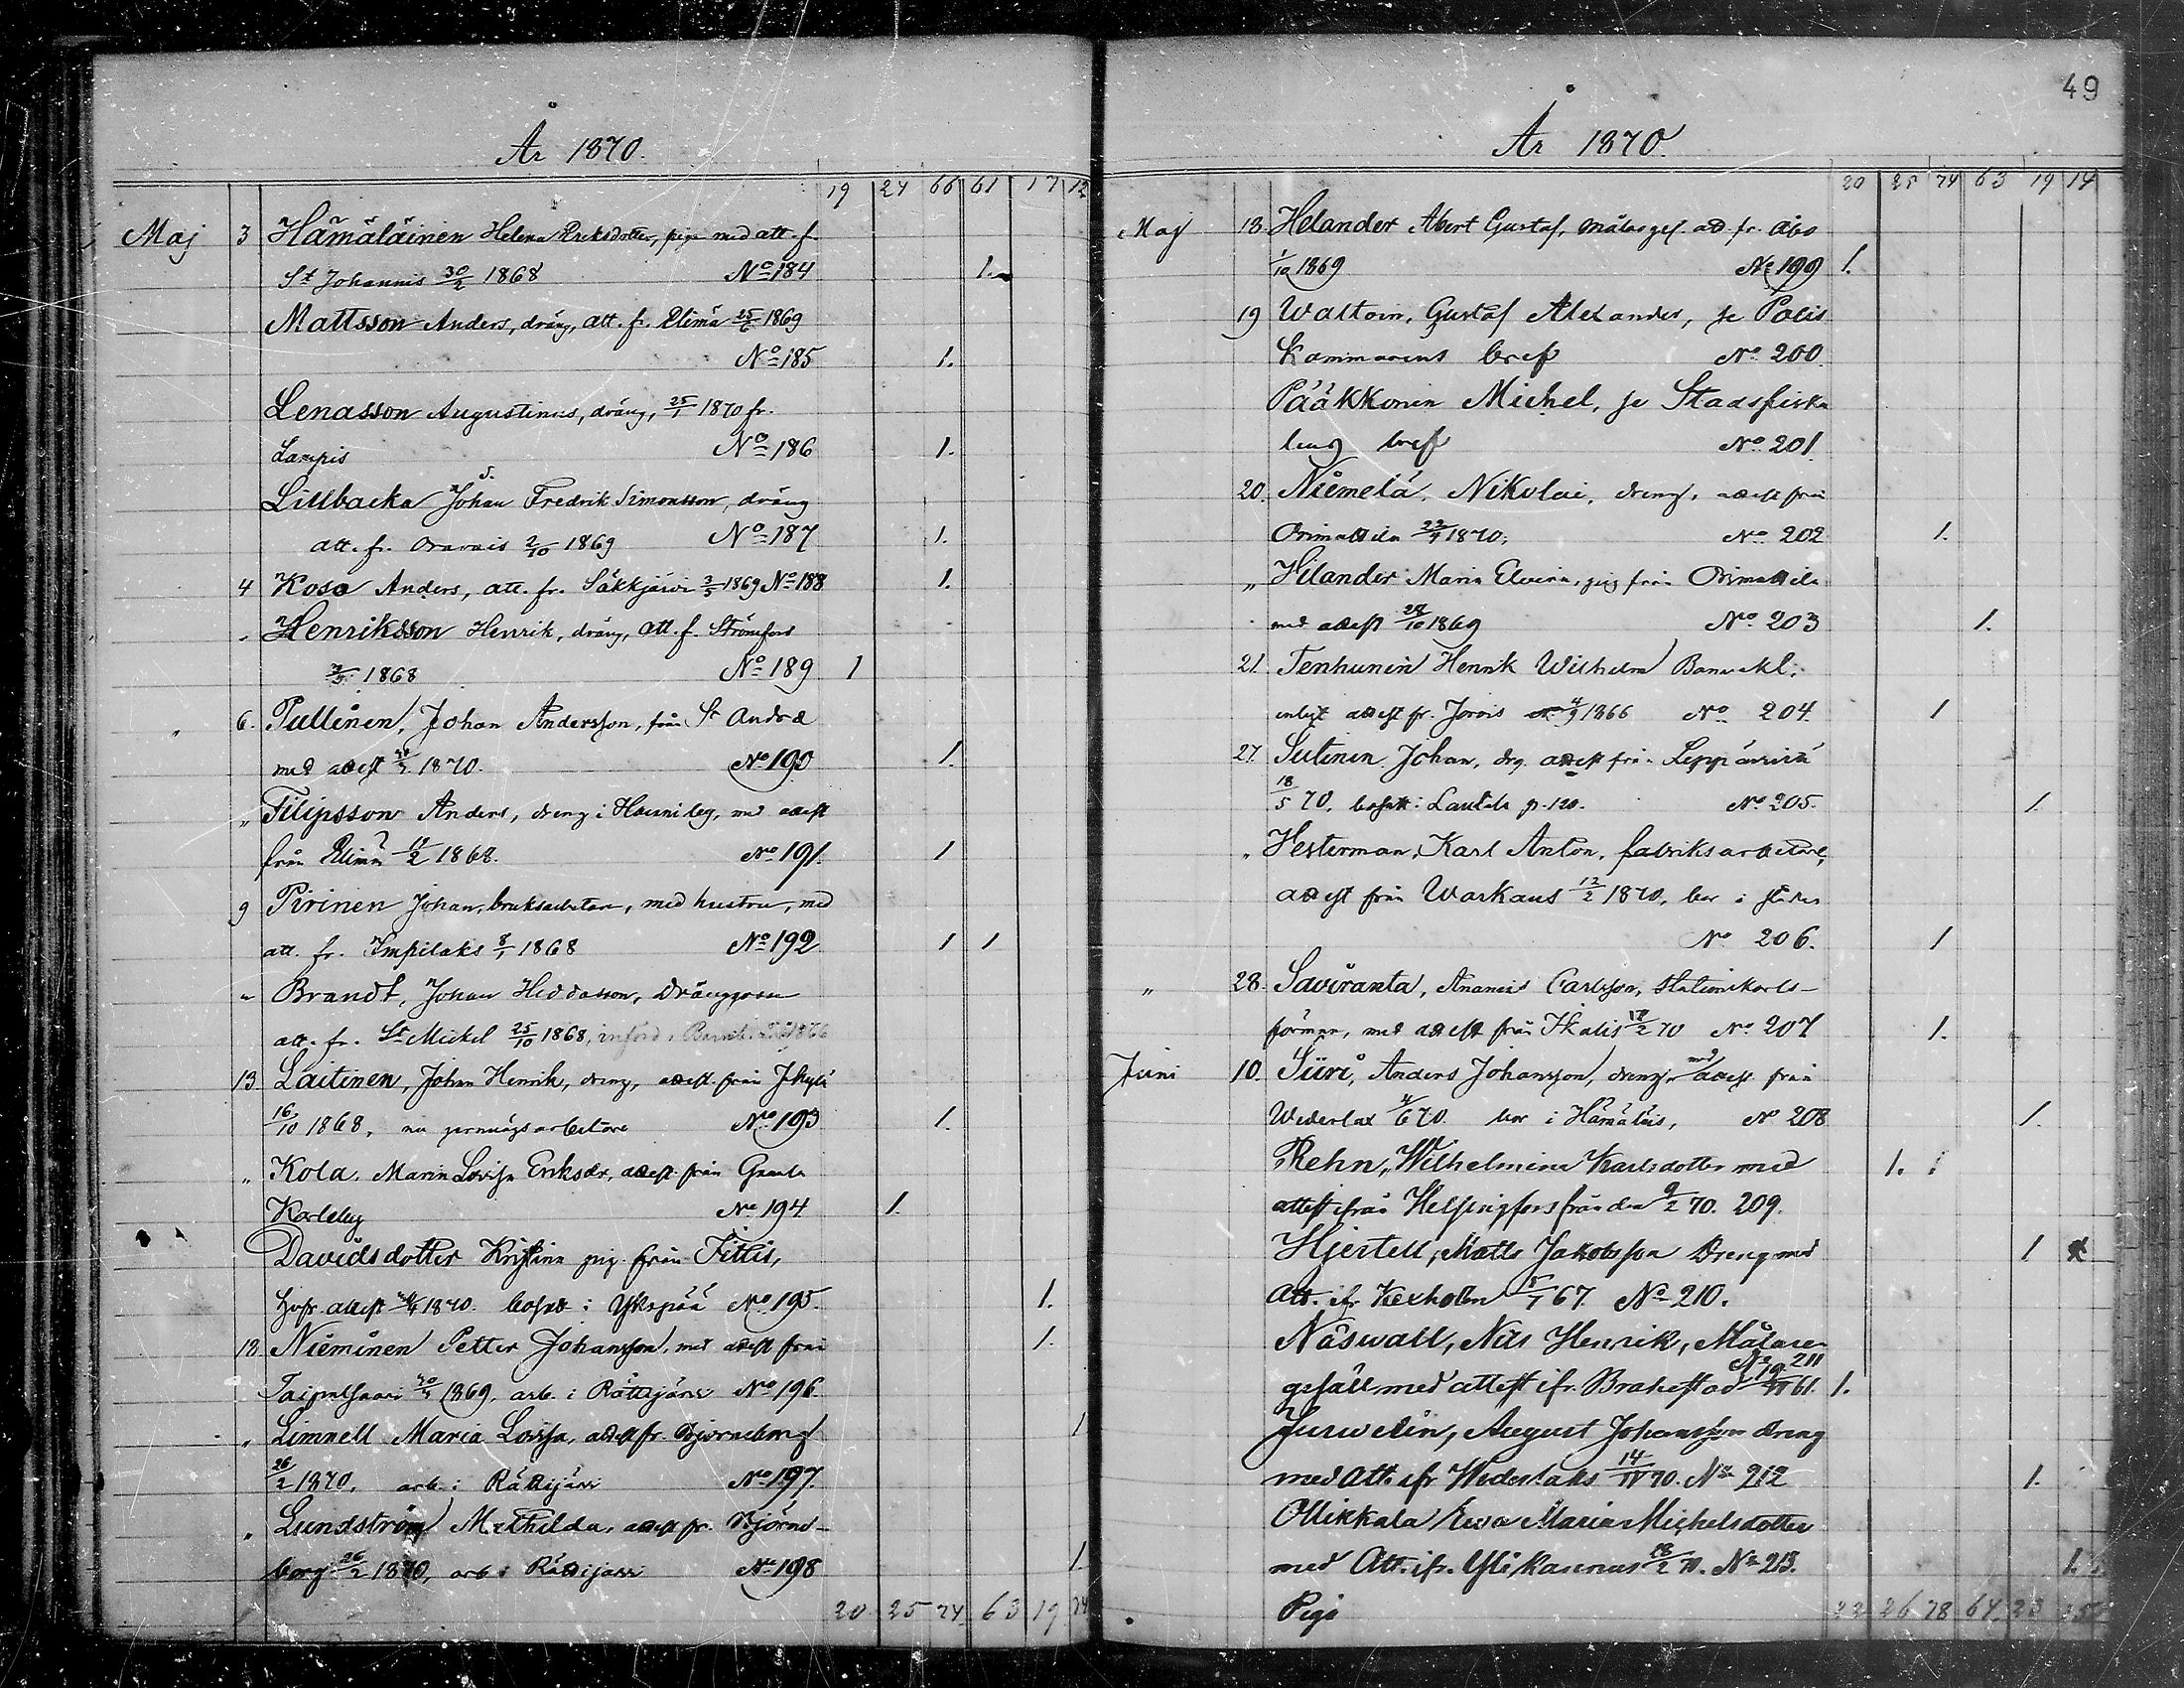 År 1870.
19 24 66 61 17 12
Maj 3 Hämäläinen Helena Eriksdotter, piga med att. f.
St Johannis 30/2 1868 No 184 1.
Mattsson Anders, dräng, att. fr. Elimä 25/6 1869
No 185 1.
Lenasson Augustinus, dräng, 25/1 1870 fr.
Lampis No 186 1.
5.
Lillbacka Johan Fredrik Simonsson, dräng
att. fr. Oravais 2/10 1869 No 187 1.
4 Koso Anders, att. fr. Säkkjärvi 3/5 1869 No 188 1.
Henriksson Henrik, dräng, att. f. Strömfors
1868 No 189 1
" 6. Pullinen, Johan Andersson, från St Andreæ
med attest 1870. No 190 1.
" Filipsson Anders, dreng i Hounilog, med attest
från Elimä 17/2 1868. No 191. 1
9 Pirinen Johan, bruksarbetare, med hustru, med
att. fr. Impilaks 8/1 1868 No 192 1 1
" Brandt, Johan Heddasson, Dränggosse
att. fr. St Mickel 25/10 1868, införd i Barnb.
13 Laitinen, Johan Henrik, dreng, attest. från Jkylä
16/10 1868, nu jernvägsarbetare No 193 1.
" Kola, Maria Lovisa Eriksdr, attest från Gamla
Karleby No 194 1.
Davidsdotter Kristina pig. från Fittis,
Hvfr. attest 1870. bosatt i Ykspää No 195. 1.
18 Nieminen Petter Johansson, med attest från 1.
Taipalsaari 1869. arb. i Rättijärvi No 196.
" Limnell Maria Lovisa, attest fr. Björneborg 1
26/2 1870, arb. i Rättijärvi No 197.
" Lundström Mathilda, attest fr. Björne-
borg 26/2 1870, arb i Rättijärvi No 198 1.
20 25 74 63 19 14
49
År 1870.
20 25 74 63 19 14
Maj 18. Helander Albert Gustaf, målargs. att. fr. Åbo
1/10 1869 No 199 1.
19 Waltoin, Gustaf Alexander, se Polis
Kammarens bref No 200.
Pääkkönen Michel, se Stadsfiska
lens bref No 201
20. Niemelä, Nikolai, dreng, attest från
Orimattila 22/4 1870; No 202 1.
" Hilander Maria Elvira, pig från Orimattila
med attest 28/10 1869 No 203 1.
21. Tenhunen Henrik Wilhelm Banvakt.
enligt attest fr. Jorois 1866 No 204. 1
27. Sutinen Johan, drg. attest från Leppävirta
18/5 70, bosatt i Lautela p. 120. No 205. 1.
" Hesterman, Karl Anton, fabriksarbetare,
attest från Warkaus 12/2 1870, bor i staden
No 206. 1
" 28. Saviranta, Ananias Carlsson, stationskarls-
förman, med attest från Ikalis 17/2 70 No 207 1.
Juni 10. Siiri, Anders Johansson, dreng med attest från
Wederlax 4/6 70. bor i Hämäläis, No 208 1.
Rehn, Wilhelmina Karlsdotter med 1.
attest ifrån Helsingfors från den 9/2 70. 209.
Hjertell, Matts Jakobsson Dreng med 1
Att. ifr Kexholm 5/1 67. No 210.
Näswall, Nils Henrik, Målare-
No 211
gesäll med attest ifr. Brahestad 19/11 61. 1.
Jurwelin, August Johansson dreng
med Att. ifr Wederlaks 14/IV 70. No 212 1.
Ollikkala Ewa Maria Michelsdotter
med Att. ifr. Ylikannus 18/2 70. No 213. 1.
Piga 22 26 78 64 23 15